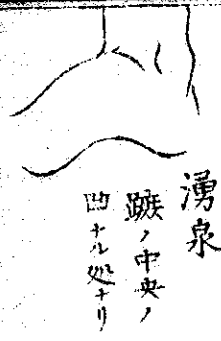 湧泉
蹠ノ中央ノ
凹ナル処ナリ